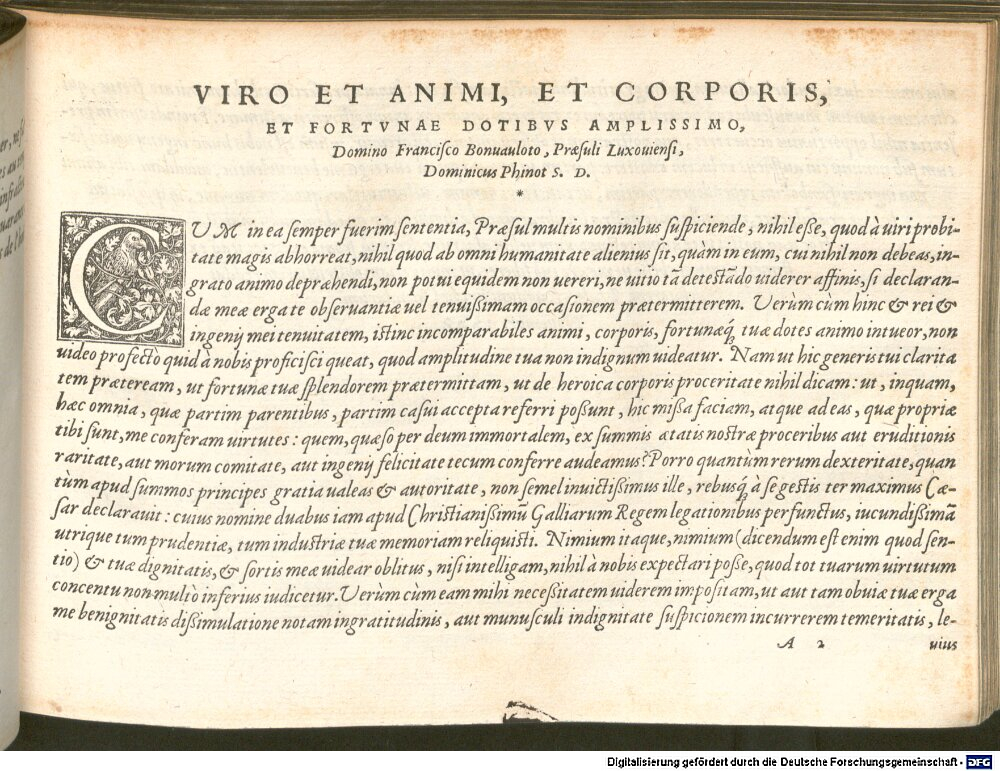 VIRO ET ANIMI, ET CORPORIS,
ET FORTVNAE DOTIBVS AMPLISSIMO,
Domino Francisco Bonuauloto, Præsuli Luxouiensi,
Dominicus Phinot S. D.
*
CUM in ea semper fuerim sententia, Præsul multis nominibus suspiciende, nihil esse, quod à uiri probi-
tate magis abhorreat, nihil quod ab omni humanitate alienius sit, quàm in eum, cui nihil non debeas, in-
grato animo depræhendi, non potui equidem non uereri, ne uitio tā detestādo viderer affinis, si declaran-
dæ meæ erga te obseruantiæ uel tenuißimam occasionem prætermitterem. Verùm cùm hinc & rei &
ingenij mei tenuitatem, istinc incomparabiles animi, corporis, fortunæq́; tuæ dotes animo intueor, non
uideo profecto quid à nobis proficisci queat, quod amplitudine tua non indignum uideatur. Nam ut hic generis tui clarita
tem præteream, ut fortunæ tuæ splendorem prætermittam, ut de heroica corporis proceritate nihil dicam: ut, inquam,
hæc omnia, quæ partim parentibus, partim casui accepta referri poßunt, hic missa faciam, atque ad eas, quæ propriæ
tibi sunt, me conferam uirtutes: quem, quæso per deum immortalem, ex summis ætatis nostræ proceribus aut eruditionis
raritate, aut morum comitate, aut ingenij felicitate tecum conferre audeamus? Porro quantùm rerum dexteritate, quan
tùm apud summos principes gratia ualeas & autoritate, non semel inuictißimus ille, rebusq́; à se gestis ter maximus Cæ-
sar declarauit: cuius nomine duabus iam apud Christianißimū Galliarum Regem legationibus perfunctus, iucundißimā
utrique tum prudentiæ, tum industriæ tuæ memoriam reliquisti. Nimium itaque, nimium (dicendum est enim quod sen-
tio) & tuæ dignitatis, & sortis meæ videar oblitus, nisi intelligam, nihil à nobis expectari posse, quod tot tuarum uirtutum
concentu non multò inferius iudicetur. Verùm cùm eam mihi neceßitatem uiderem impositam, ut aut tam obuiæ tuæ erga
me benignitatis dißimulatione notam ingratitudinis, aut munusculi indignitate suspicionem incurrerem temeritatis, le-
A 2 uius
Digitalisierung gefördert durch die Deutsche Forschungsgemeinschaft - DFG